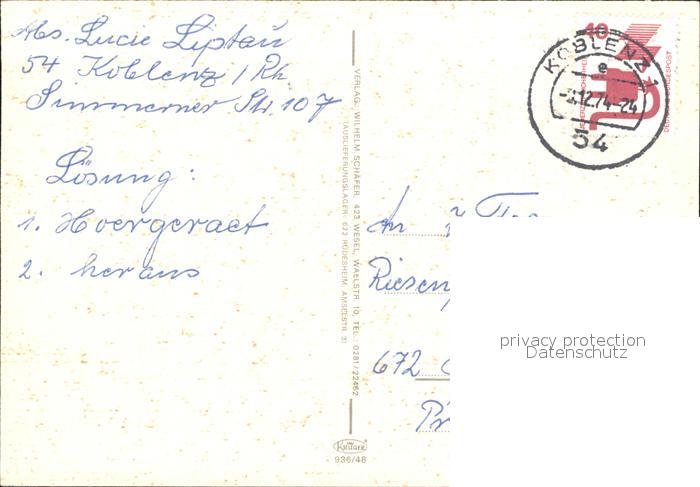 Abs. Lucie Liptau
54 Koblenz / Rh
Simmerner Str. 107
Lösung:
1. Hoergeraet
2. heraus
VERLAG: WILHELM SCHÄFER, 423 WESEL, WAELSTR. 10, TEL. 0281/22462
(AUSLIEFERUNGSLAGER: 622 RÜDESHEIM, AMSELSTR. 3)
KRÜGER
936/48
40
KOBLENZ 1
e
12.74-24
54
DEUTSCHE BUNDESPOST
An
Riesen
672
privacy protection
Datenschutz